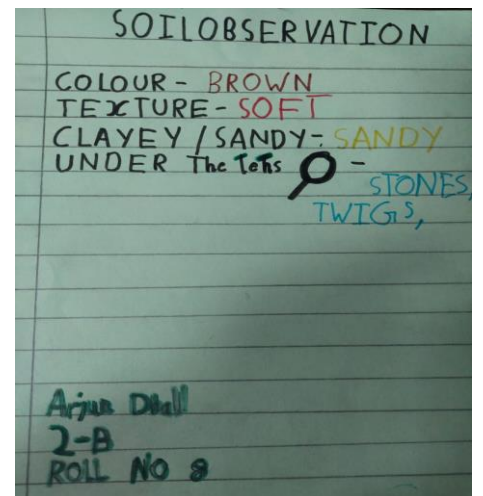 SOILOBSERVATION
COLOUR - BROWN
TEXTURE - SOFT
CLAYEY / SANDY - SANDY
UNDER The Lens -
STONES,
TWIGS,
Arjun Dhall
2-B
ROLL NO 8